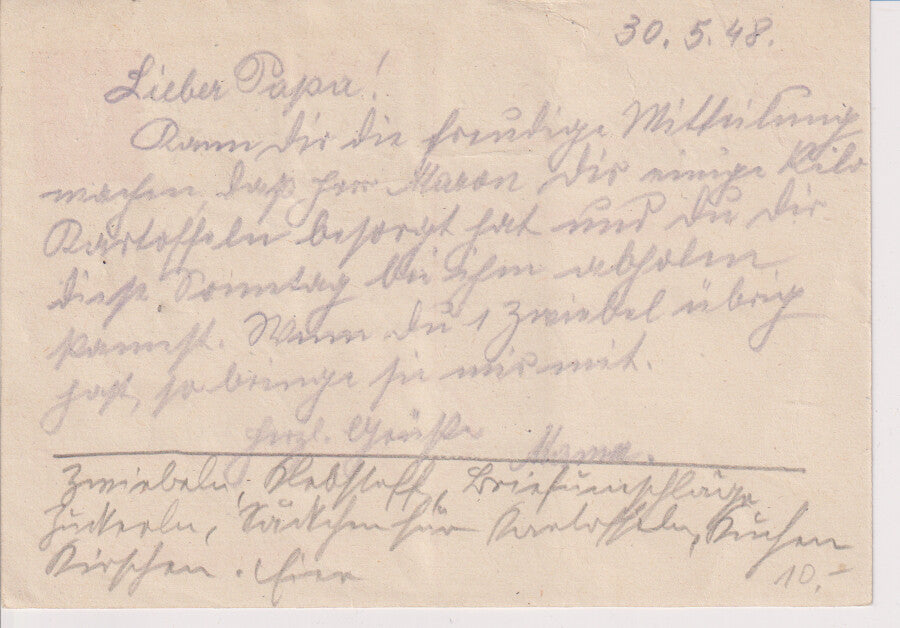 30. 5. 48.
Lieber Papa!
Kann dir die freudige Mitteilung
machen, daß Herr Maron dir einige Kilo
Kartoffeln besorgt hat und du dir
diese Sonntag bei ihm abholen
kannst. Wenn du 1 Zwiebel übrig
hast, so bringe sie mir mit.
Herzl. Grüße Mama.
Zwiebeln, Klebstoff, Briefumschläge
Zuckerln, Säckchen für Kartoffeln, Kuchen
Kirschen. Eier
10.-